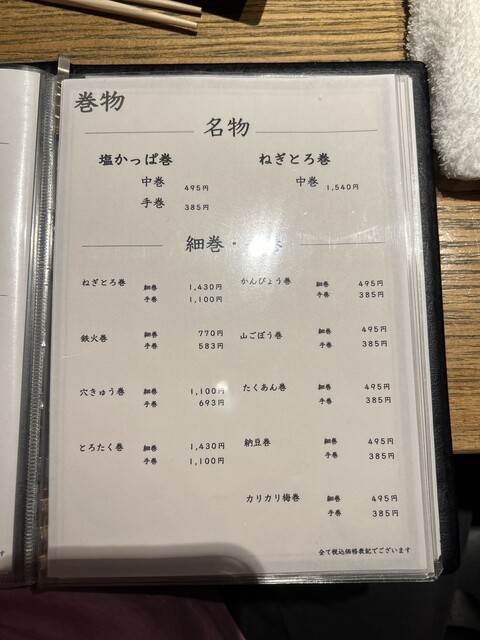 巻物
名物
塩かっぱ巻 ねぎとろ巻
中巻 495円 中巻 1,540円
手巻 385円
細巻・
ねぎとろ巻 細巻 1,430円 かんぴょう巻 細巻 495円
手巻 1,100円 手巻 385円
鉄火巻 細巻 770円 山ごぼう巻 細巻 495円
手巻 583円 手巻 385円
穴きゅう巻 細巻 1,100円 たくあん巻 細巻 495円
手巻 693円 手巻 385円
とろたく巻 細巻 1,430円 納豆巻 細巻 495円
手巻 1,100円 手巻 385円
カリカリ梅巻 細巻 495円
手巻 385円
全て税込価格表記でございます
す